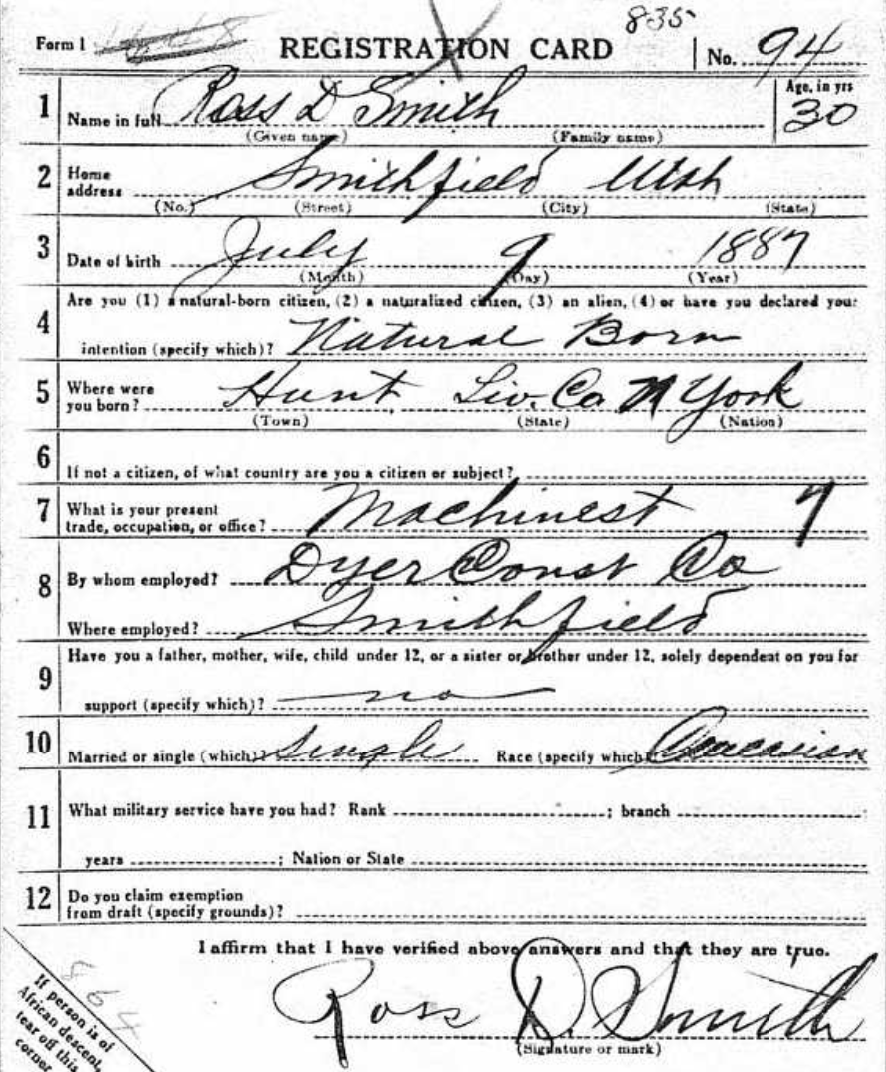 835
Form 1 REGISTRATION CARD No. 94
1 Name in full Ross D Smith Age, in yrs 30
(Given name) (Family name)
2 Home address Smithfield Utah
(No.) (Street) (City) (State)
3 Date of birth July 9 1887
(Month) (Day) (Year)
Are you (1) a natural-born citizen, (2) a naturalized citizen, (3) an alien, (4) or have you declared your
4 intention (specify which)? Natural Born
5 Where were you born? Hunt Liv. Co N York
(Town) (State) (Nation)
6 If not a citizen, of what country are you a citizen or subject?
7 What is your present trade, occupation, or office? Machinest 7
8 By whom employed? Dyer Const Co
Where employed? Smithfield
9 Have you a father, mother, wife, child under 12, or a sister or brother under 12, solely dependent on you for
support (specify which)? no
10 Married or single (which)? Single Race (specify which)
11 What military service have you had? Rank ; branch
years ; Nation or State
12 Do you claim exemption
from draft (specify grounds)?
I affirm that I have verified above answers and that they are true.
Ross D. Smith
(Signature or mark)
864
If person is of
African descent,
tear off this
corner